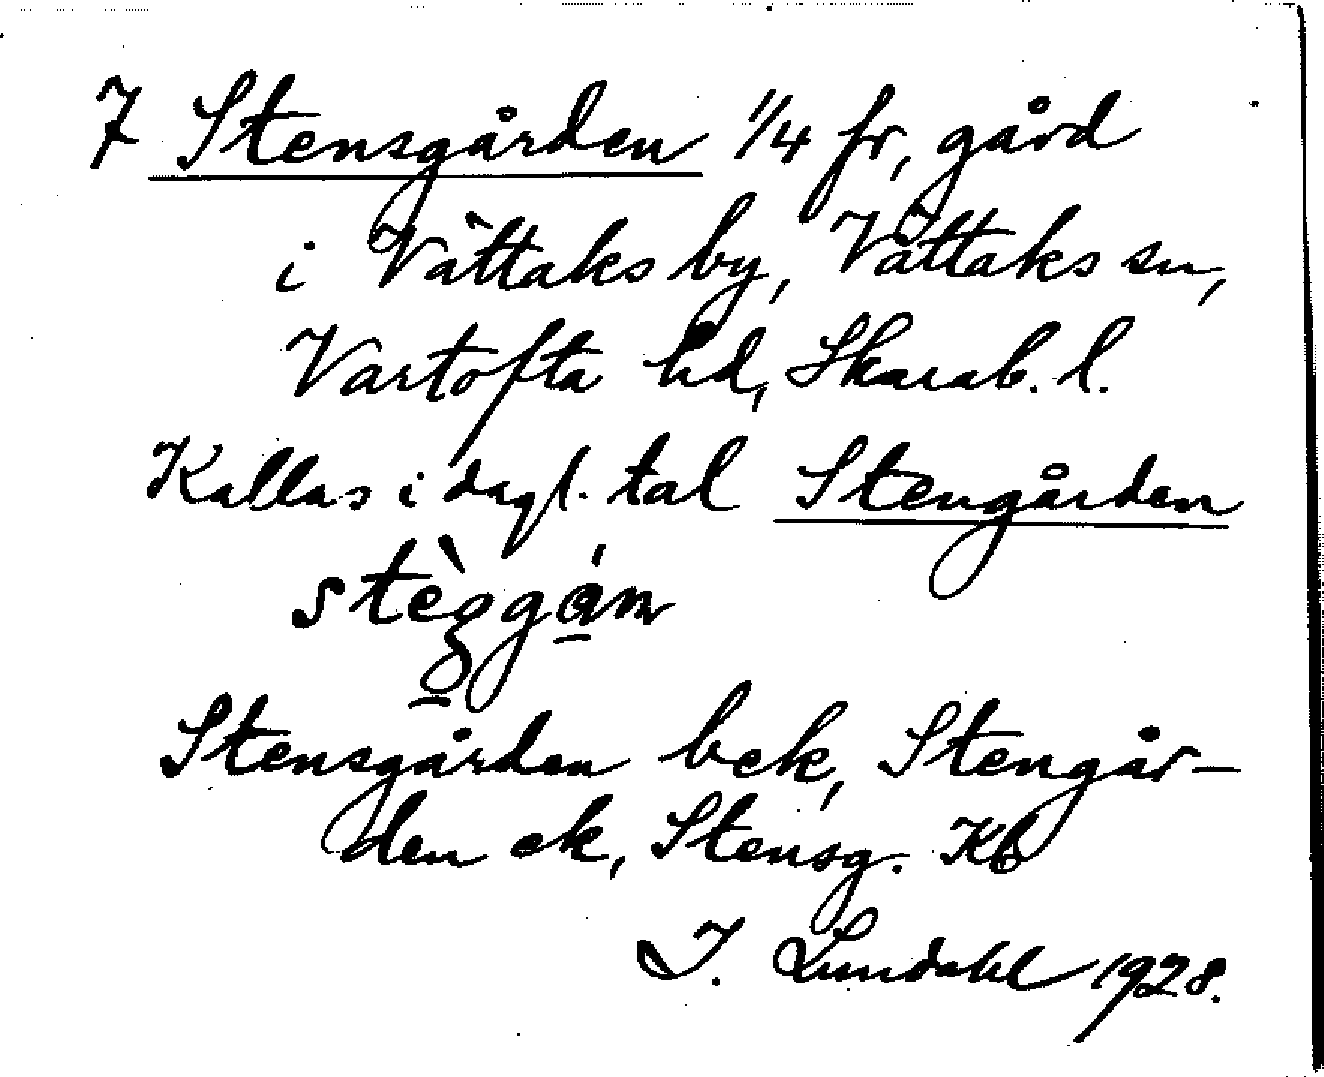 7 Stensgården 1/4 fr, gård
i Vättaks by, Vättaks sn,
Vartofta hd, Skarab. l.
Kallas i dagl. tal Stengården
Stensgården bek, Stengår-
den ek, Stensg. Kb
I. Lundahl 1928.